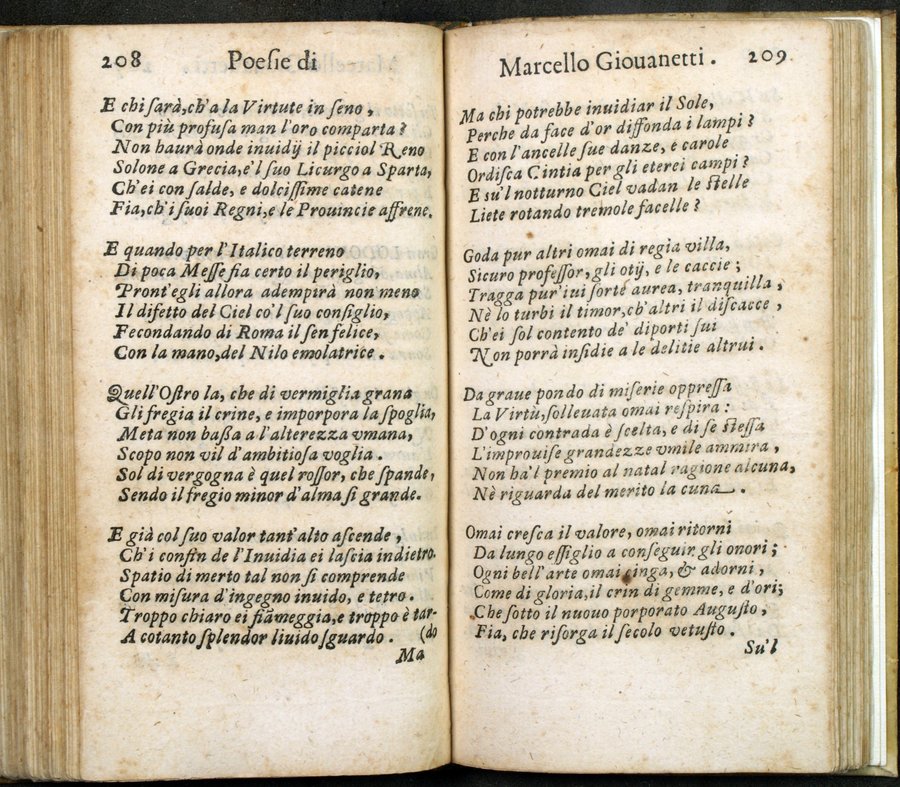 208 Poesie di
E chi sarà, ch'a la Virtute in seno,
Con più profusa man l'oro comparta?
Non haurà onde inuidij il picciol Reno
Solone a Grecia, e'l suo Licurgo a Sparta,
Ch'ei con salde, e dolcissime catene
Fia, ch'i suoi Regni, e le Prouincie affrene.
E quando per l'Italico terreno
Di poca Messe fia certo il periglio,
Pront'egli allora adempirà non meno
Il difetto del Ciel co'l suo consiglio,
Fecondando di Roma il sen felice,
Con la mano, del Nilo emolatrice.
Quell'Ostro la, che di vermiglia grana
Gli fregia il crine, e imporpora la spoglia,
Meta non baßa a l'alterezza vmana,
Scopo non vil d'ambitiosa voglia.
Sol di vergogna è quel rossor, che spande,
Sendo il fregio minor d'alma sì grande.
E già col suo valor tant'alto ascende,
Ch'i confin de l'Inuidia ei lascia indietro.
Spatio di merto tal non si comprende
Con misura d'ingegno inuido, e tetro.
Troppo chiaro ei fiãmeggia, e troppo è tar-
A cotanto splendor liuido sguardo. (do
Ma
Marcello Giouanetti. 209
Ma chi potrebbe inuidiar il Sole,
Perche da face d'or diffonda i lampi?
E con l'ancelle sue danze, e carole
Ordisca Cintia per gli eterei campi?
E su'l notturno Ciel vadan le stelle
Liete rotando tremole facelle?
Goda pur altri omai di regia villa,
Sicuro professor, gli otij, e le caccie;
Tragga pur'iui sorte aurea, tranquilla,
Nè lo turbi il timor, ch'altri il discacce,
Ch'ei sol contento de' diporti sui
Non porrà insidie a le delitie altrui.
Da graue pondo di miserie oppressa
La Virtù, solleuata omai respira:
D'ogni contrada è scelta, e di se stessa
L'improuise grandezze vmile ammira,
Non ha'l premio al natal ragione alcuna,
Nè riguarda del merito la cuna.
Omai cresca il valore, omai ritorni
Da lungo essiglio a conseguir gli onori;
Ogni bell'arte omai cinga, & adorni,
Come di gloria, il crin di gemme, e d'ori;
Che sotto il nuouo porporato Augusto,
Fia, che risorga il secolo vetusto.
Su'l